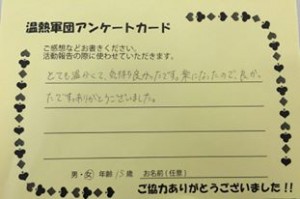 温熱軍団アンケートカード
ご感想などお書きください。
活動報告の際に使わせていただきます。
とても温かくて、気持ち良かったです。楽になったので、良かっ
たです。ありがとうございました。
男・女 年齢 15 歳 お名前(任意)
ご協力ありがとうございました!!